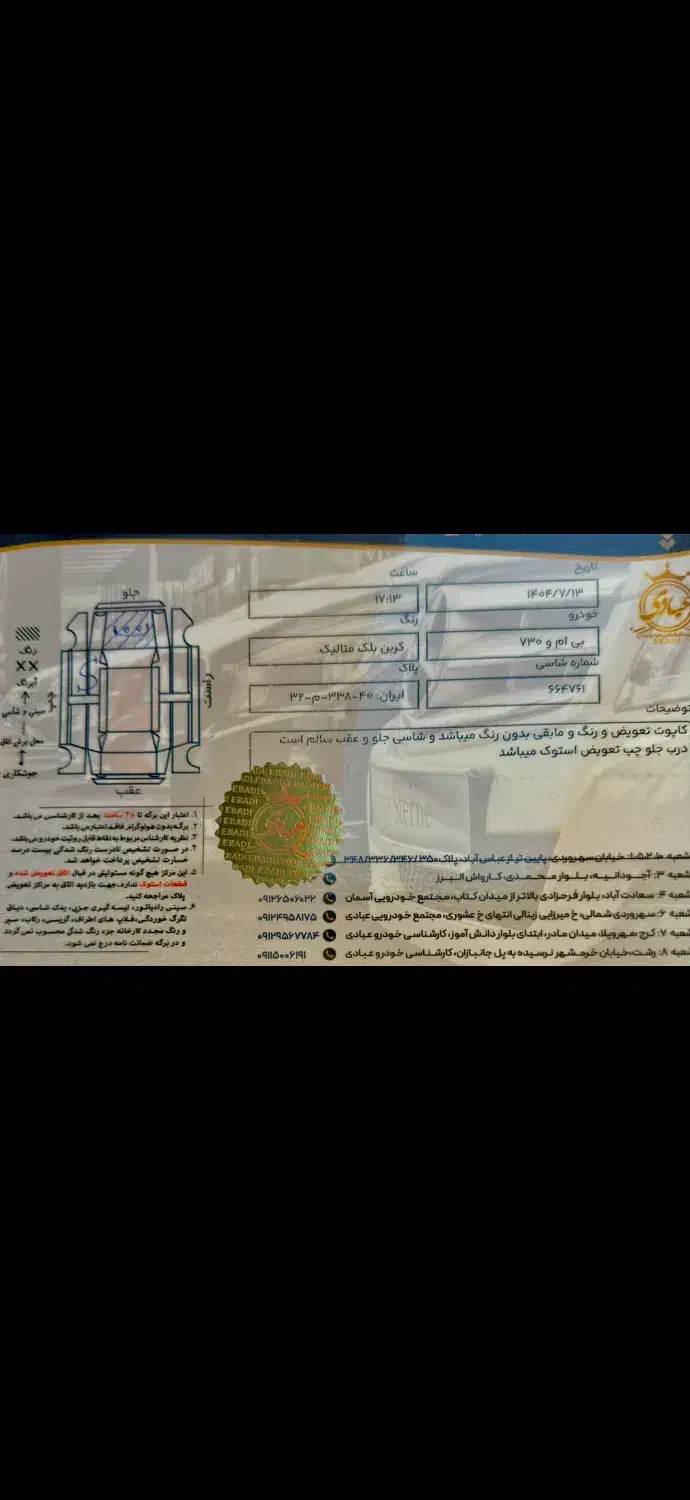 تاریخ
ساعت
۱۴۰۴/۷/۱۳
۱۷:۱۳
خودرو
رنگ
بی ام و ۷۳۰
کربن بلک متالیک
شماره شاسی
پلاک
۶۶۴۷۶۱
ایران: ۴۰-۳۳۸-م-۳۲
عبادی
EBADI
توضیحات
کاپوت تعویض و رنگ و مابقی بدون رنگ میباشد و شاسی جلو و عقب سالم است
درب جلو چپ تعویض استوک میباشد
جلو
راست
چپ
عقب
رنگ
XX
آبرنگ
سینی و شاسی
محل برش اتاق
جوشکاری
۱. اعتبار این برگه تا ۴۸ ساعت بعد از کارشناسی می باشد.
۲. برگه بدون هولوگرام فاقد اعتبار می باشد.
۳. نظریه کارشناس مربوط به نقاط قابل روئیت خودرو می باشد.
۴. در صورت تشخیص نادرست رنگ شدگی بیست درصد
خسارت تشخیص پرداخت خواهد شد.
۵. این مرکز هیچ گونه مسئولیتی در قبال اتاق تعویض شده و
قطعات استوک ندارد.جهت بازدید اتاق به مراکز تعویض
پلاک مراجعه کنید.
۶. سینی رادیاتور، لیسه گیری جزی، یدک شاسی، دیاق
تگرگ خوردگی، فلاپ های اطراف، گریسی، رکاب، سپر
و رنگ مجدد کارخانه جزء رنگ شدگی محسوب نمی گردد
و در برگه ضمانت نامه درج نمی شود.
EBADI
sterne
شعبه ۱،۲،۵،۱۰: خیابان سهروردی، پایین تر از عباس آباد، پلاک ۳۴۸/۳۳۶/۳۴۶/۳۵۰
شعبه ۳: آجودانیه، بلوار محمدی، کارواش البرز
شعبه ۴: سعادت آباد، بلوار فرحزادی بالاتر از میدان کتاب، مجتمع خودرویی آسمان ۰۹۱۲۶۵۰۶۰۲۲
شعبه ۶: سهروردی شمالی، خ میرزایی زینالی انتهای خ عشوری، مجتمع خودرویی عبادی ۰۹۱۲۴۹۵۸۱۷۵
شعبه ۷: کرج، مهرویلا، میدان مادر، ابتدای بلوار دانش آموز، کارشناسی خودرو عبادی ۰۹۱۲۹۵۶۷۷۸۴
شعبه ۸: رشت، خیابان خرمشهر نرسیده به پل جانبازان، کارشناسی خودرو عبادی ۰۹۱۱۵۰۰۶۱۹۱